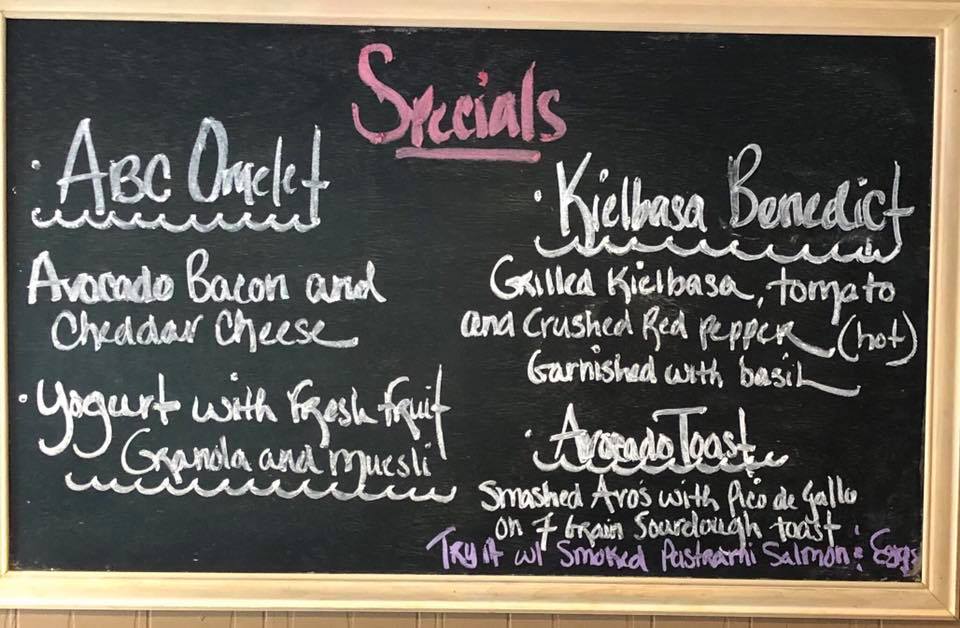 Specials
• ABC Omelet
Avocado Bacon and
Cheddar Cheese
• Yogurt with Fresh Fruit
Granola and muesli
• Kielbasa Benedict
Grilled Kielbasa, tomato
and Crushed Red pepper (hot)
Garnished with basil
• Avocado Toast
Smashed Avo's with Pico de Gallo
on 7 Grain Sourdough toast
Try it w/ Smoked Pastrami Salmon & Eggs